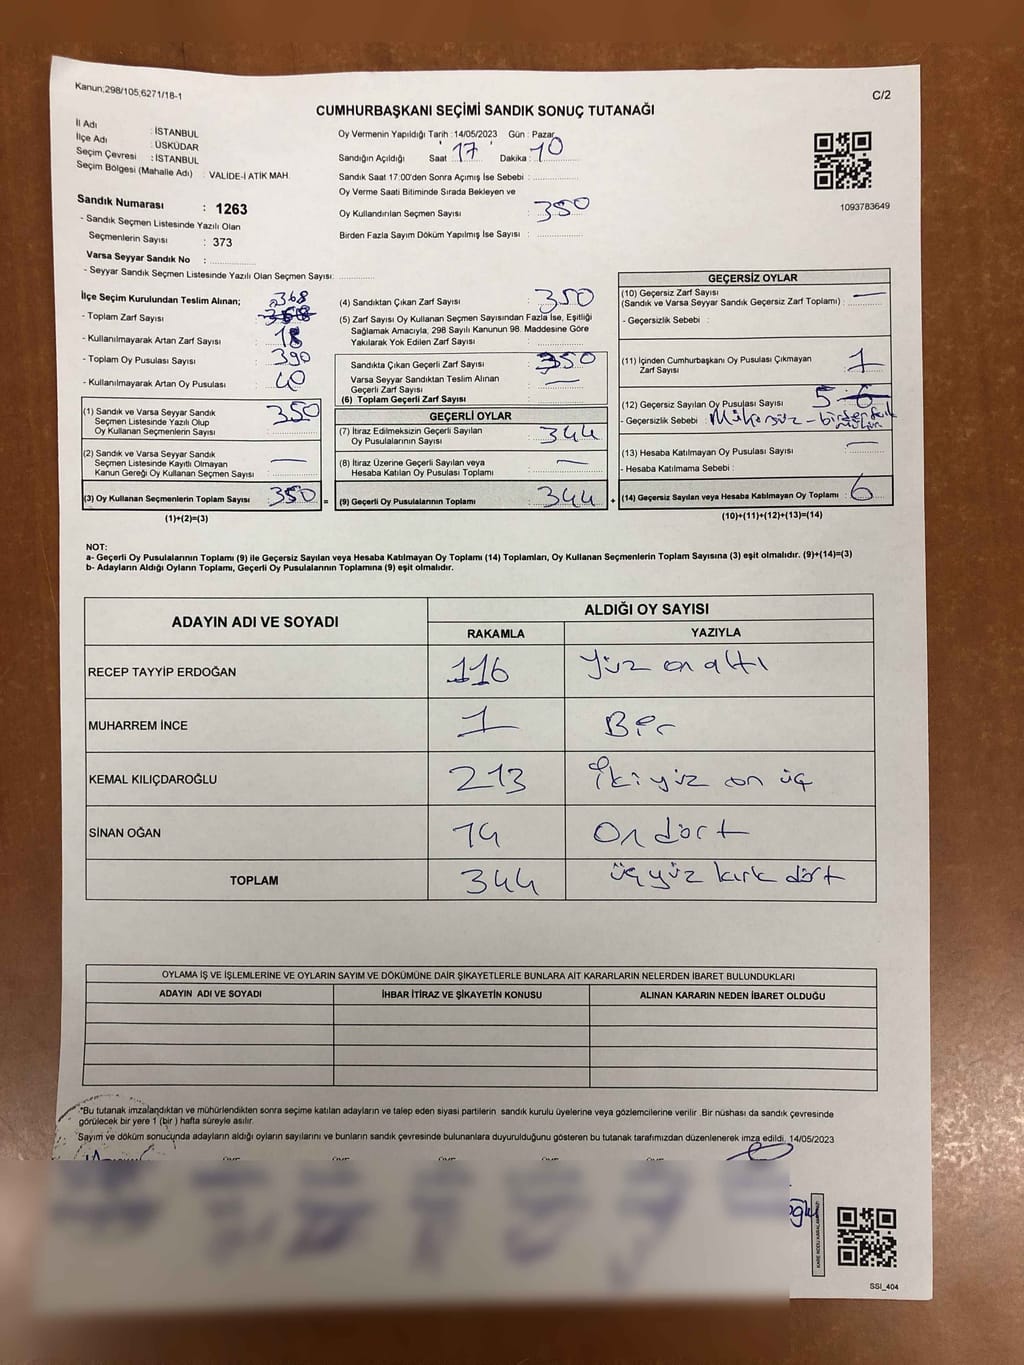 Kanun;298/105,6271/18-1
C/2
CUMHURBAŞKANI SEÇİMİ SANDIK SONUÇ TUTANAĞI
İl Adı : İSTANBUL
İlçe Adı : ÜSKÜDAR
Seçim Çevresi : İSTANBUL
Seçim Bölgesi (Mahalle Adı) : VALİDE-İ ATİK MAH.
Sandık Numarası : 1263
- Sandık Seçmen Listesinde Yazılı Olan
Seçmenlerin Sayısı : 373
Varsa Seyyar Sandık No :
- Seyyar Sandık Seçmen Listesinde Yazılı Olan Seçmen Sayısı:
Oy Vermenin Yapıldığı Tarih : 14/05/2023 Gün : Pazar
Sandığın Açıldığı Saat : 17 Dakika : 10
Sandık Saat 17:00'den Sonra Açımış İse Sebebi :
Oy Verme Saati Bitiminde Sırada Bekleyen ve
Oy Kullandırılan Seçmen Sayısı : 350
Birden Fazla Sayım Döküm Yapılmış İse Sayısı :
1093783649
İlçe Seçim Kurulundan Teslim Alınan; 368
- Toplam Zarf Sayısı
- Kullanılmayarak Artan Zarf Sayısı : 18
- Toplam Oy Pusulası Sayısı : 390
- Kullanılmayarak Artan Oy Pusulası : 40
(1) Sandık ve Varsa Seyyar Sandık
Seçmen Listesinde Yazılı Olup
Oy Kullanan Seçmenlerin Sayısı : 350
(2) Sandık ve Varsa Seyyar Sandık
Seçmen Listesinde Kayıtlı Olmayan
Kanun Gereği Oy Kullanan Seçmen Sayısı : —
(3) Oy Kullanan Seçmenlerin Toplam Sayısı : 350 =
(1)+(2)=(3)
(4) Sandıktan Çıkan Zarf Sayısı : 350
(5) Zarf Sayısı Oy Kullanan Seçmen Sayısından Fazla İse, Eşitliği
Sağlamak Amacıyla; 298 Sayılı Kanunun 98. Maddesine Göre
Yakılarak Yok Edilen Zarf Sayısı :
Sandıkta Çıkan Geçerli Zarf Sayısı : 350
Varsa Seyyar Sandıktan Teslim Alınan
Geçerli Zarf Sayısı : —
(6) Toplam Geçerli Zarf Sayısı :
GEÇERLİ OYLAR
(7) İtiraz Edilmeksizin Geçerli Sayılan
Oy Pusulalarının Sayısı : 344
(8) İtiraz Üzerine Geçerli Sayılan veya
Hesaba Katılan Oy Pusulası Toplamı : —
(9) Geçerli Oy Pusulalarının Toplamı : 344 +
GEÇERSİZ OYLAR
(10) Geçersiz Zarf Sayısı
(Sandık ve Varsa Seyyar Sandık Geçersiz Zarf Toplamı) : —
- Geçersizlik Sebebi :
(11) İçinden Cumhurbaşkanı Oy Pusulası Çıkmayan
Zarf Sayısı : 1
(12) Geçersiz Sayılan Oy Pusulası Sayısı : 5 6
- Geçersizlik Sebebi : Mühürsüz - birden fazla
(13) Hesaba Katılmayan Oy Pusulası Sayısı : —
- Hesaba Katılmama Sebebi :
(14) Geçersiz Sayılan veya Hesaba Katılmayan Oy Toplamı : 6
(10)+(11)+(12)+(13)=(14)
NOT:
a- Geçerli Oy Pusulalarının Toplamı (9) ile Geçersiz Sayılan veya Hesaba Katılmayan Oy Toplamı (14) Toplamları, Oy Kullanan Seçmenlerin Toplam Sayısına (3) eşit olmalıdır. (9)+(14)=(3)
b- Adayların Aldığı Oyların Toplamı, Geçerli Oy Pusulalarının Toplamına (9) eşit olmalıdır.
ADAYIN ADI VE SOYADI ALDIĞI OY SAYISI
RAKAMLA YAZIYLA
RECEP TAYYİP ERDOĞAN 116 Yüz on altı
MUHARREM İNCE 1 Bir
KEMAL KILIÇDAROĞLU 213 İki yüz on üç
SİNAN OĞAN 14 On dört
TOPLAM 344 üç yüz kırk dört
OYLAMA İŞ VE İŞLEMLERİNE VE OYLARIN SAYIM VE DÖKÜMÜNE DAİR ŞİKAYETLERLE BUNLARA AİT KARARLARIN NELERDEN İBARET BULUNDUKLARI
ADAYIN ADI VE SOYADI İHBAR İTİRAZ VE ŞİKAYETİN KONUSU ALINAN KARARIN NEDEN İBARET OLDUĞU
*Bu tutanak imzalandıktan ve mühürlendikten sonra seçime katılan adayların ve talep eden siyasi partilerin sandık kurulu üyelerine veya gözlemcilerine verilir .Bir nüshası da sandık çevresinde
görülecek bir yere 1 (bir ) hafta süreyle asılır.
Sayım ve döküm sonucunda adayların aldığı oyların sayılarını ve bunların sandık çevresinde bulunanlara duyurulduğunu gösteren bu tutanak tarafımızdan düzenlenerek imza edildi. 14/05/2023
SSI_404